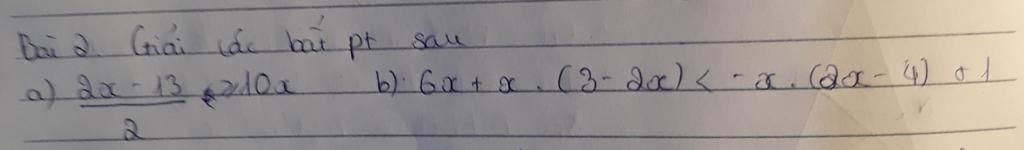 Bài 2 Giải các bất pt sau
a) \frac{2x - 13}{2} > 10x b) 6x + x . (3 - 2x) < - x . (2x - 4) + 1